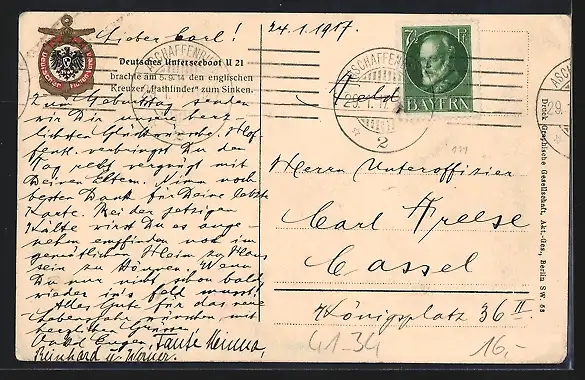 Lieber Carl!
24.1.1917.
Deutsches Unterseeboot U 21
brachte am 5. 9. 14 den englischen
Kreuzer „Pathfinder" zum Sinken.
Zum Geburtstag senden
wir Dir unsere herz-
lichsten Glückwünsche. Hof-
fentl. verbringst Du den
Tag recht vergnügt mit
Deinen Eltern. Nimm noch
besten Dank für Deine letzte
Karte. Bei der jetzigen
Kälte wirst Du es ange-
nehm empfinden noch im
gemütlichen Heim zu Haus
sein zu können. Wenn
Du nur nicht schon bald
wieder ins Feld musst!
Alles Gute für das neue
Lebensjahr wünschen mit
herzlichen Grüssen
Onkel Eugen, Tante Minna,
Reinhard u. Werner.
ASCHAFFENBURG
2
7½ Pf
BAYERN
Herrn Unteroffizier
Carl Freese
Cassel
Königsplatz 36 II
41-34
16,-
Druck Graphische Gesellschaft, Akt.-Ges., Berlin SW. 68